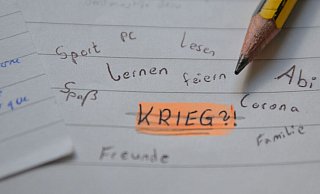 PC
Sport
Lesen
Lernen
feiern
Abi
Spaß
Corona
KRIEG?!
Familie
Freunde
que